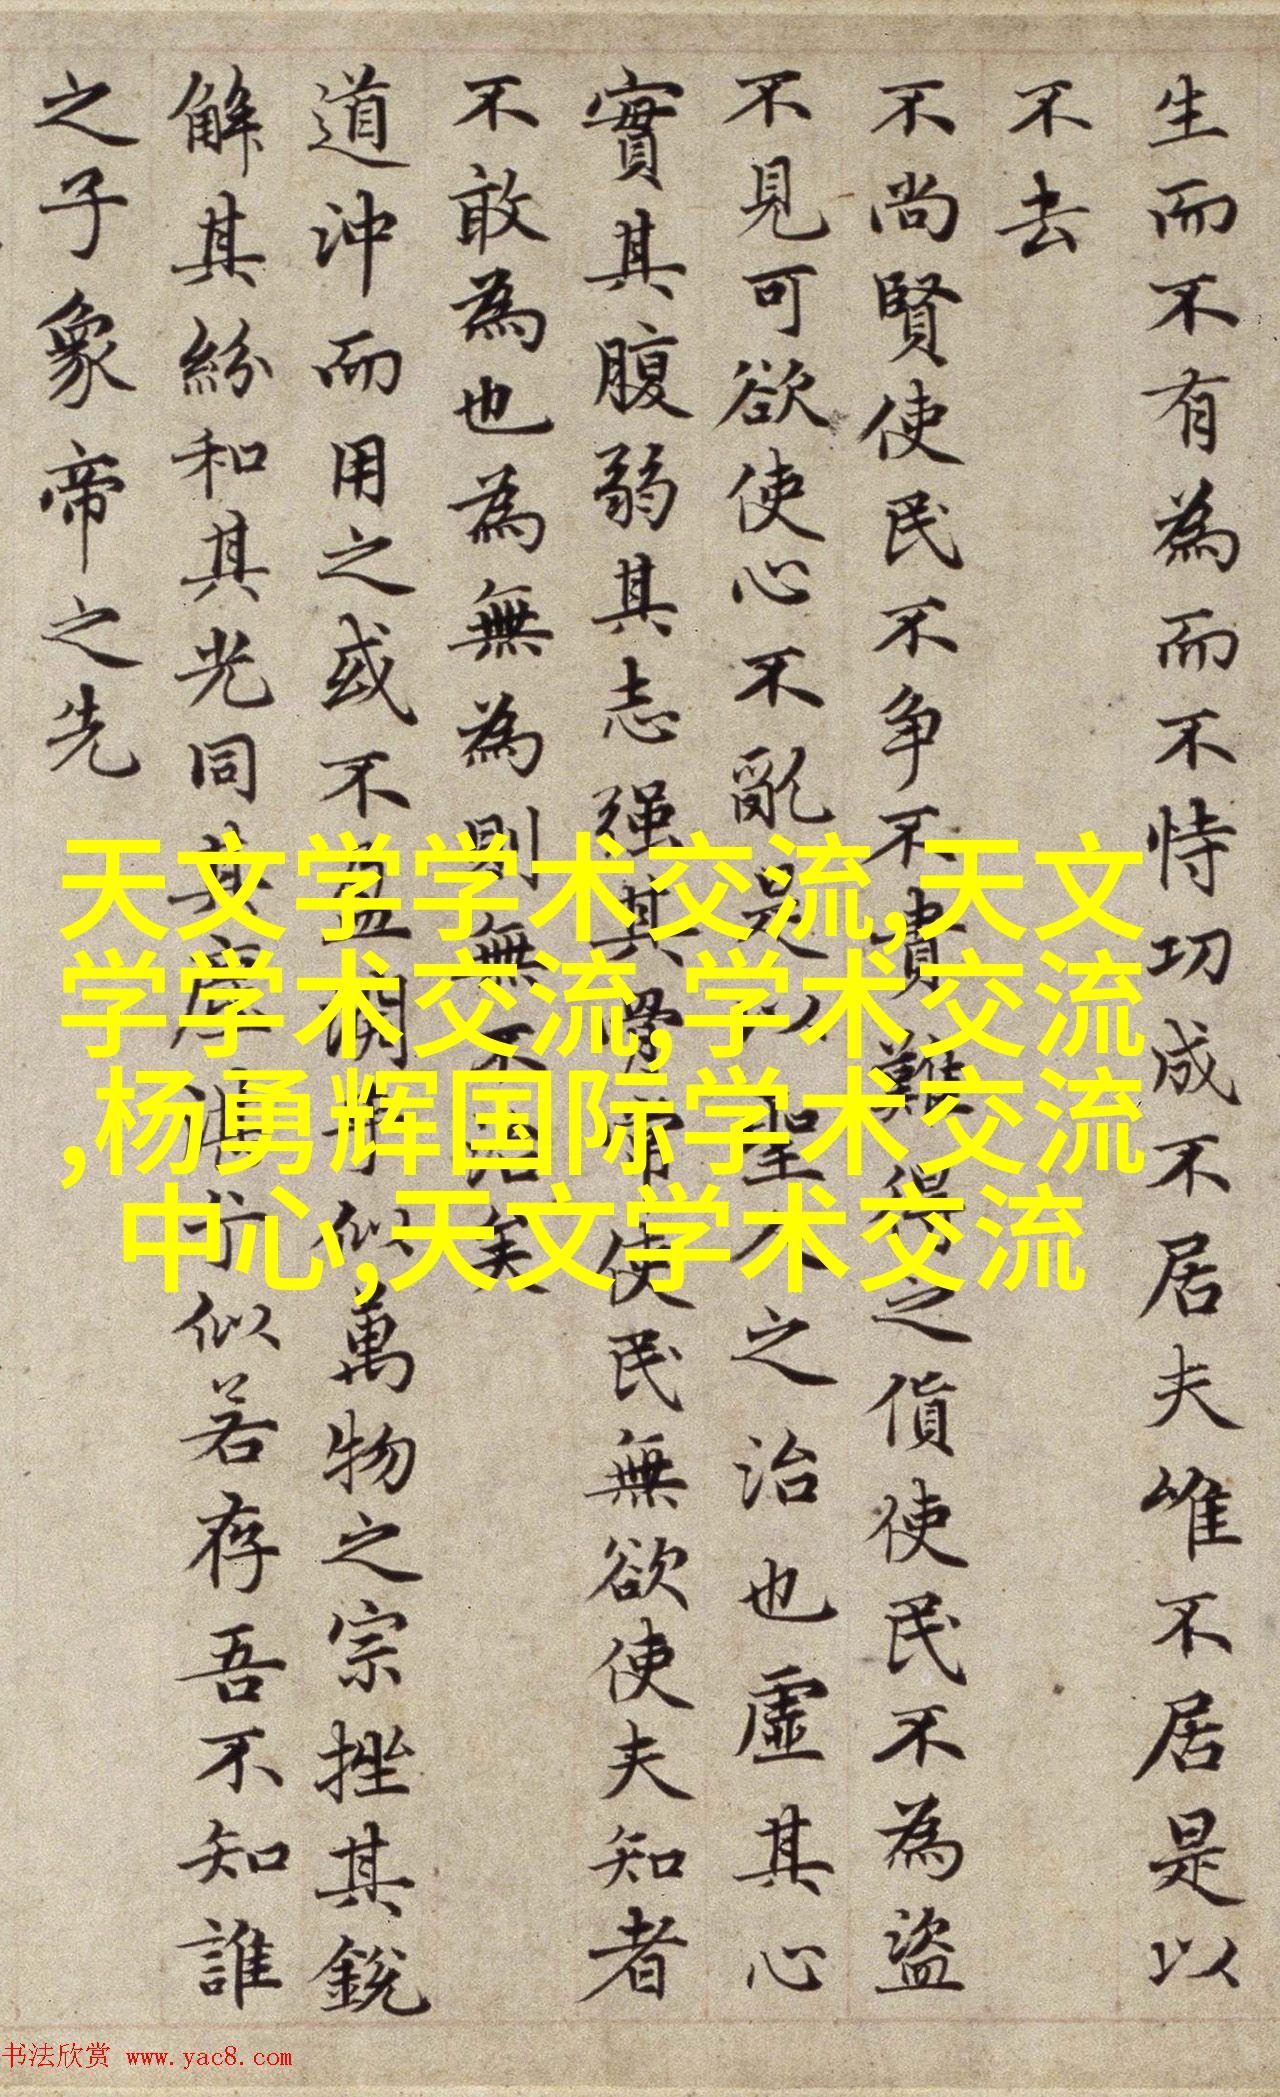 生而不有為而不恃功成不居夫唯不居是以
不去
不尚賢使民不争不貴難得之貨使民不為盜
不見可欲使心不亂是以聖人之治也虛其心
實其腹弱其志强其骨常使民無欲使夫知者
不敢為也為無為則無不治矣
道沖而用之或不盈淵乎似萬物之宗挫其銳
解其紛和其光同其塵湛兮似若存吾不知誰
之子象帝之先
天文学学术交流,天文
学学术交流,学术交流
,杨勇辉国际学术交流
中心,天文学术交流
书法欣赏 www.yac8.com